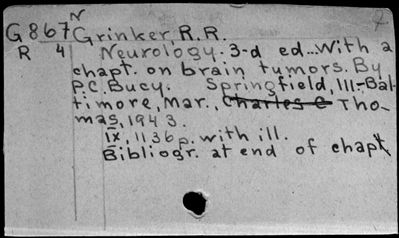 N
G867 Grinker, R.R.
R 4 Neurology. 3-d ed... With a
chapt. on brain tumors. By
P.C. Bucy. Springfield, Ill.-Bal-
timore, Mar., Charles C Tho-
mas, 1943.
IX, 1136 p. with ill.
Bibliogr. at end of chapt